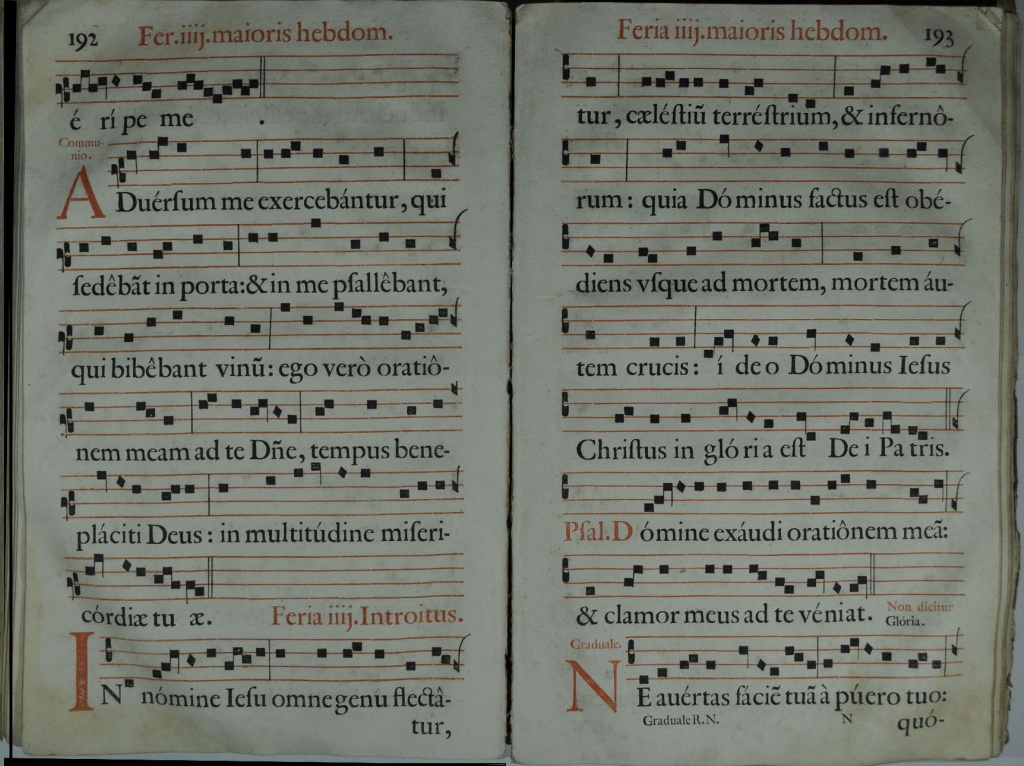 192 Fer.iiij.maioris hebdom.
é rípe me .
Commu-
nio.
ADuérſum me exercebántur, qui
ſedêbãt in porta:& in me pſallêbant,
qui bibêbant vinũ: ego verò oratiô-
nem meam ad te Dñe, tempus bene-
pláciti Deus: in multitúdine miſeri-
córdiæ tu æ. Feria iiij.Introitus.
IN nómine Ieſu omne genu flectâ-
tur,
Feria iiij.maioris hebdom. 193
tur, cæléſtiũ terréſtrium, & infernô-
rum: quia Dóminus factus eſt obé-
diens vſque ad mortem, mortem áu-
tem crucis: í deo Dóminus Ieſus
Chriſtus in glória eſt Dei Patris.
Pſal.Dómine exáudi oratiônem meã:
& clamor meus ad te véniat. Non dicitur
Glória.
Graduale.
NE auértas fáciẽ tuã à púero tuo:
Graduale R.N. N quó-